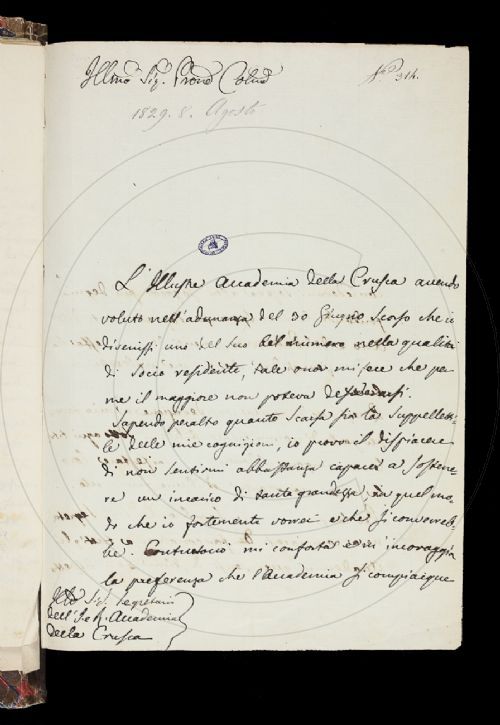 Illmo Sig. Prone Colmo
No 314.
1829. 8. Agosto
L'Illustre Accademia della Crusca avendo
voluto nell'adunanza del 30 Giugno Scorso che io
divenissi uno del suo bel numero nella qualità
di Socio residente, tale onor mi fece che per
me il maggiore non poteva desiderarsi.
Sapendo peraltro quanto Scarsa sia la Suppellet-
le delle mie cognizioni, io provo il dispiacere
di non sentirmi abbastanza capace a Sostene-
re un incarico di tanta grandezza, in quel mo-
do che io fortemente vorrei e che si converreb-
be. Contuttociò mi conforta e m'incoraggia
la preferenza che l'Accademia si compiacque
Sig. Segretario
dell'I. e R. Accademia
della Crusca